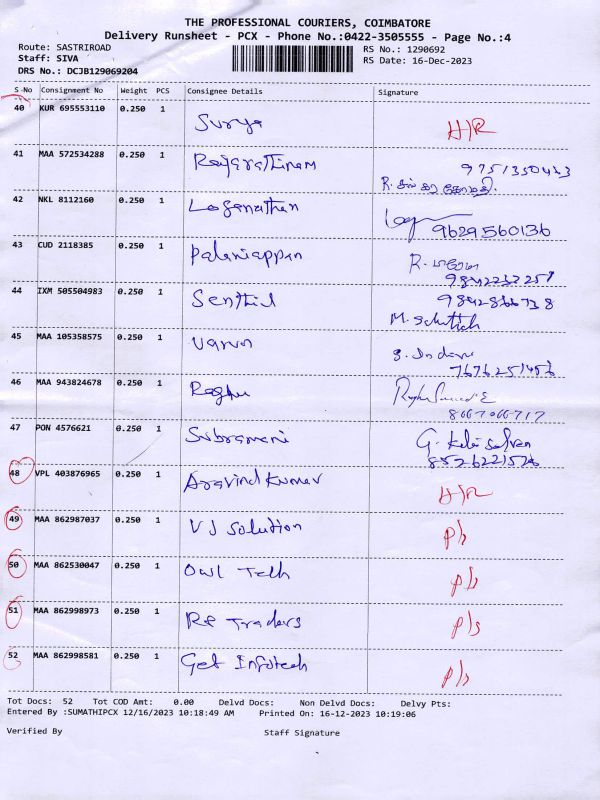 THE PROFESSIONAL COURIERS, COIMBATORE
Delivery Runsheet - PCX - Phone No.:0422-3505555 - Page No.:4
Route: SASTRIROAD RS No.: 1290692
Staff: SIVA RS Date: 16-Dec-2023
DRS No.: DCJB129069204
S-No Consignment No Weight PCS Consignee Details Signature
40 KUR 695553110 0.250 1 Surya H/R
41 MAA 572534288 0.250 1 Rajarathinam
42 NKL 8112160 0.250 1 Loganathan 9629560136
43 CUD 2118385 0.250 1 Palaniappan R.
44 IXM 505504983 0.250 1 Senthil 9842866738
M.
45 MAA 105358575 0.250 1 Varun
7676251456
46 MAA 943824678 0.250 1 Raghu
8667066717
47 PON 4576621 0.250 1 Subramani G.
8526221576
48 VPL 403876965 0.250 1 Aravind Kumar H/R
49 MAA 862987037 0.250 1 VJ Solution P/s
50 MAA 862530047 0.250 1 Owl Tech P/s
51 MAA 862998973 0.250 1 Traders P/s
52 MAA 862998581 0.250 1 Get Infotech P/s
Tot Docs: 52 Tot COD Amt: 0.00 Delvd Docs: Non Delvd Docs: Delvy Pts:
Entered By :SUMATHIPCX 12/16/2023 10:18:49 AM Printed On: 16-12-2023 10:19:06
Verified By Staff Signature